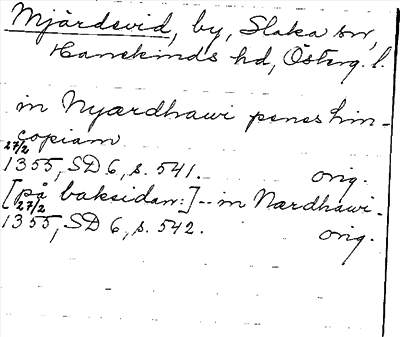 Mjärdevid, by, Slaka sn,
Hanekinds hd, Österg. l.
in Nyærdhawi penes hin-
copiam
27/2
1355, SD 6, s. 541. orig.
[på baksidan:] -- in Nærdhawi.
27/2
1355, SD 6, s. 542. orig.